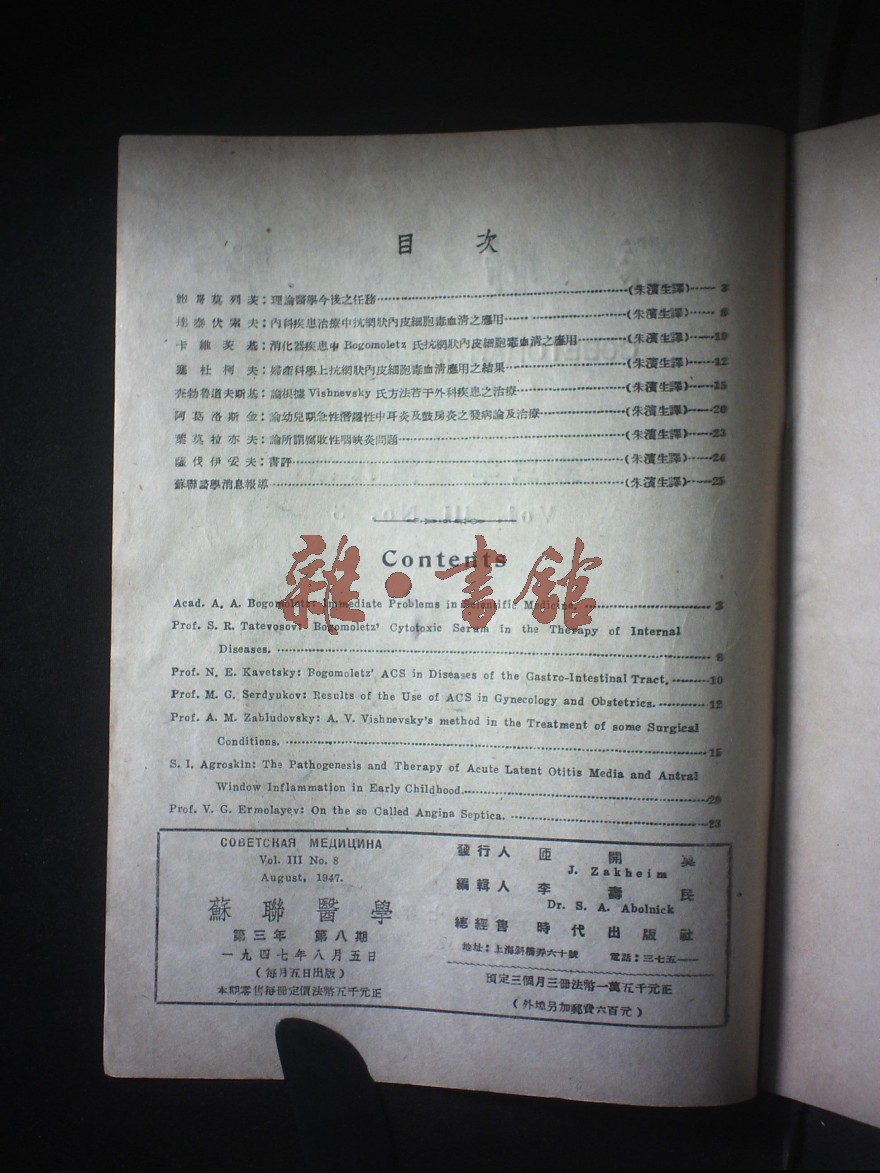 目 次
鮑哥莫列茨：理論醫學今後之任務……(朱濱生譯)……3
達泰伏索夫：內科疾患治療中抗網狀內皮細胞毒血清之應用……(朱濱生譯)……6
卡維茨基：消化器疾患中 Bogomoletz 氏抗網狀內皮細胞毒血清之應用……(朱濱生譯)……10
杜柯夫：婦產科學上抗網狀內皮細胞毒血清應用之結果……(朱濱生譯)……12
勃魯道夫斯基：論根據 Vishnevsky 氏方法若干外科疾患之治療……(朱濱生譯)……15
阿葛洛斯金：論幼兒期急性潛躍性中耳炎及鼓房炎之發病論及治療……(朱濱生譯)……20
莫拉亦夫：論所謂腐敗性咽峽炎問題……(朱濱生譯)……23
薩伐伊安夫：書評……(朱濱生譯)……24
蘇聯醫學消息報導……(朱濱生譯)……25
Contents
雜·書館
Acad. A. A. Bogomoletz: Immediate Problems in Scientific Medicine. ……3
Prof. S. R. Tatevosov: Bogomoletz' Cytotoxic Serum in the Therapy of Internal
Diseases. ……6
Prof. N. E. Kavetsky: Bogomoletz' ACS in Diseases of the Gastro-Intestinal Tract. ……10
Prof. M. G. Serdyukov: Results of the Use of ACS in Gynecology and Obstetrics. ……12
Prof. A. M. Zabludovsky: A. V. Vishnevsky's method in the Treatment of some Surgical
Conditions. ……15
S. I. Agroskin: The Pathogenesis and Therapy of Acute Latent Otitis Media and Antral
Window Inflammation in Early Childhood. ……20
Prof. V. G. Ermolayev: On the so Called Angina Septica. ……23
СОВЕТСКАЯ МЕДИЦИНА
Vol. III No. 8
August, 1947.
蘇聯醫學
第三年 第八期
一九四七年八月五日
(每月五日出版)
本期零售每冊定價法幣五千元正
發行人 匝開莫
J. Zakheim
編輯人 李壽民
Dr. S. A. Abolnick
總經售 時代出版社
地址：上海斜橋弄六十號 電話：三七五一一
預定三個月三冊法幣一萬五千元正
(外埠另加郵費六百元)